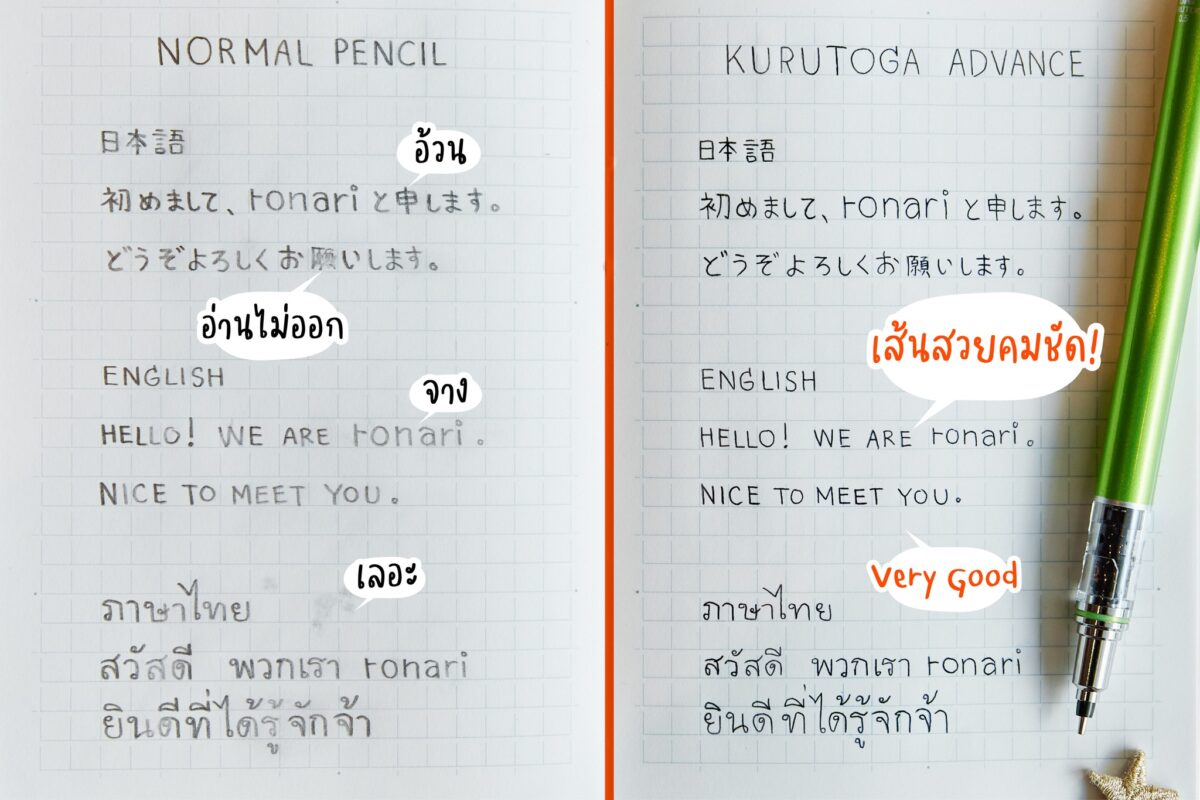 NORMAL PENCIL
日本語
อ้วน
初めまして、ronariと申します。
どうぞよろしくお願いします。
อ่านไม่ออก
ENGLISH
จาง
HELLO! WE ARE ronari.
NICE TO MEET YOU.
เลอะ
ภาษาไทย
สวัสดี พวกเรา ronari
ยินดีที่ได้รู้จักจ้า
KURUTOGA ADVANCE
日本語
初めまして、ronariと申します。
どうぞよろしくお願いします。
เส้นสวยคมชัด!
ENGLISH
HELLO! WE ARE ronari.
NICE TO MEET YOU.
Very Good
ภาษาไทย
สวัสดี พวกเรา ronari
ยินดีที่ได้รู้จักจ้า
0.5